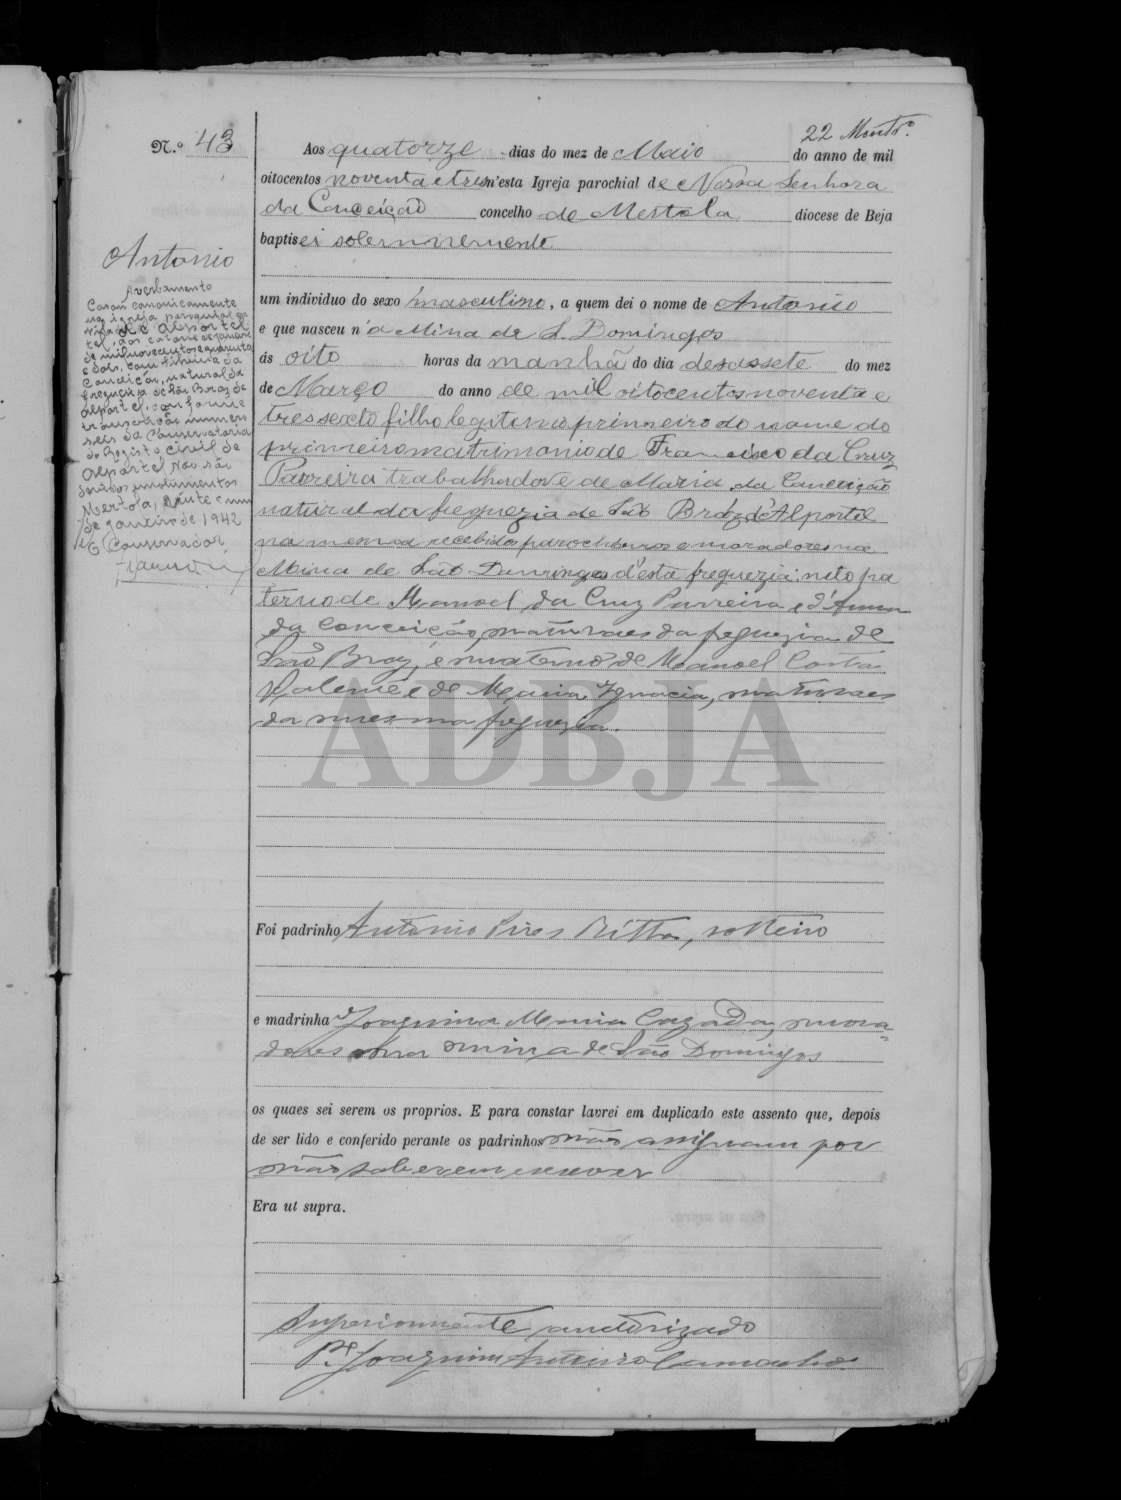 22 Monto.
N.º 43
Aos quatorze dias do mez de Maio do anno de mil
oitocentos noventa e tres n'esta Igreja parochial de Nossa Senhora
da Conceição concelho de Mertola diocese de Beja
baptisei solemnemente
um individuo do sexo masculino, a quem dei o nome de Antonio
e que nasceu n'a Mina de S. Domingos
ás oito horas da manhã do dia desassete do mez
de Março do anno de mil oitocentos noventa e
tres sexto filho legitimo primeiro do nome do
primeiro matrimonio de Francisco da Cruz
Parreira trabalhador e de Maria da Conceição
natural da freguezia de São Braz d'Alportel
na mesma recebidos parochianos e moradores na
Mina de São Domingos d'esta freguezia: neto pa
terno de Manoel da Cruz Parreira e d'Anna
da Conceição, naturaes da freguezia de
São Braz, e materno de Manoel Costa
Valente e de Maria Ignacia, naturaes
da mesma freguezia.
Foi padrinho Antonio Pires Ritta, solteiro
e madrinha Joaquina Maria Cazada, mora-
dores na mina de São Domingos
os quaes sei serem os proprios. E para constar lavrei em duplicado este assento que, depois
de ser lido e conferido perante os padrinhos não assignam por
não saberem escrever
Era ut supra.
Superiormente auctorizado
Pe. Joaquim Camacho
Antonio
Averbamento
Casou canonicamente
na igreja paroquial da
vila de Alportel
aos catorze de janeiro
de mil novecentos e quarenta
e dois, com da
Conceição, natural da
freguezia de São Braz de
Alportel, conforme
numero
seis da Conservatoria
do Registo Civil de
Alportel. Não são
devidos emolumentos
Mertola, vinte e um
de janeiro de 1942
O Conservador,
ADBJA